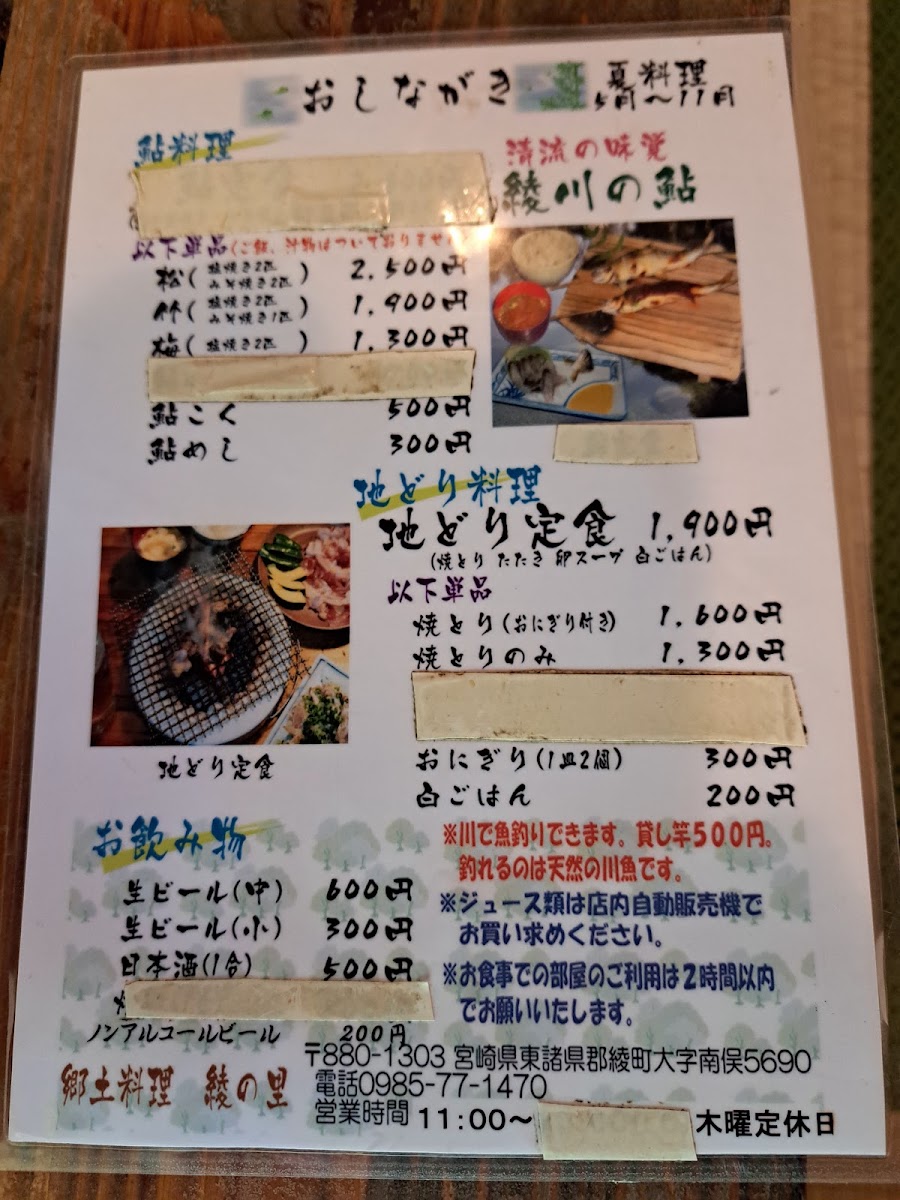 おしながき
夏料理
5月〜11月
鮎料理
清流の味覚
綾川の鮎
以下単品(ご飯、汁物はついておりません
松(塩焼き2匹 みそ焼き2匹) 2,500円
竹(塩焼き2匹 みそ焼き1匹) 1,900円
梅(塩焼き2匹) 1,300円
鮎こく 500円
鮎めし 300円
地どり料理
地どり定食 1,900円
(焼とり たたき 卵スープ 白ごはん)
以下単品
焼とり(おにぎり付き) 1,600円
焼とりのみ 1,300円
おにぎり(1皿2個) 300円
白ごはん 200円
地どり定食
お飲み物
生ビール(中) 600円
生ビール(小) 300円
日本酒(1合) 500円
ノンアルコールビール 200円
※川で魚釣りできます。貸し竿500円。
釣れるのは天然の川魚です。
※ジュース類は店内自動販売機で
お買い求めください。
※お食事での部屋のご利用は2時間以内
でお願いいたします。
郷土料理 綾の里
〒880-1303 宮崎県東諸県郡綾町大字南俣5690
電話0985-77-1470
営業時間 11:00〜 木曜定休日